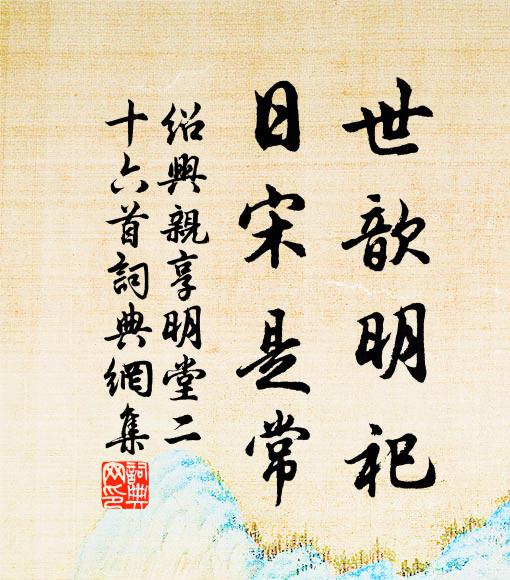 世歆明祀
日宋是常
绍興親享明堂二
十六首詞典網集
詞典
网印